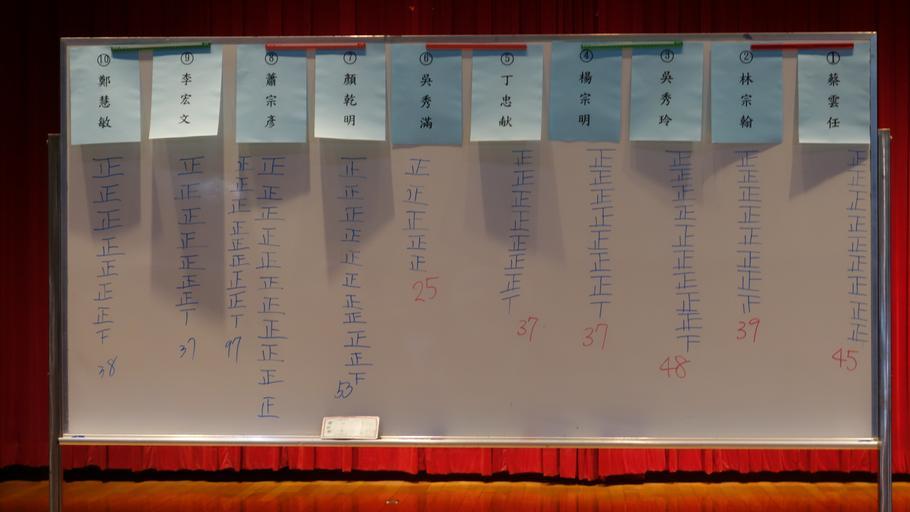 ①蔡雲任
正正正正正正正正正
45
②林宗翰
正正正正正正正止
39
③吳秀玲
正正正正正正正正正下
48
④楊宗明
正正正正正正正丅
37
⑤丁忠献
正正正正正正正丅
37
⑥吳秀滿
正正正正正
25
⑦顏乾明
正正正正正正正正正正下
53
⑧蕭宗彥
正正正正正正正正正正正
正正正正正正正正丅
97
⑨李宏文
正正正正正正正丅
37
⑩鄭慧敏
正正正正正正正下
38